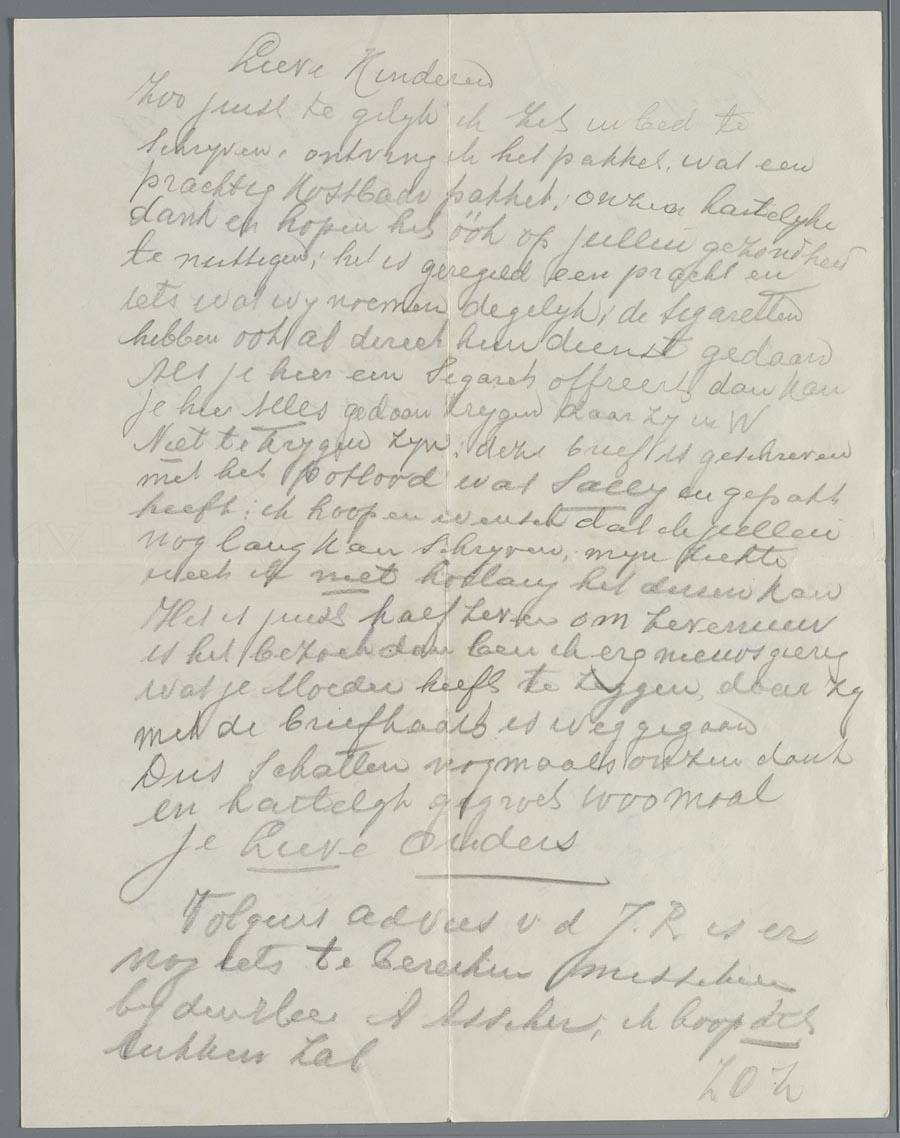 Lieve Kinderen
Zoo juist te gelyk ik zit in bed te
schryven, ontving ik het pakket, wat een
prachtig kostbaar pakket; onzen hartelyke
dank en hopen het óók op jullie gezondheid
te nuttigen; het is geregeld een pracht en
iets wat wy noemen degelyk; de sigaretten
hebben ook al direct hun dienst gedaan
Als je hier een Sigaret offreert dan kan
je hier Alles gedaan krygen daar zy in W
Niet te krygen zyn; deze brief is geschreven
met het Potlood wat Sally in gepakt
heeft; ik hoop en wensch dat ik jullie
nog lang kan schryven, myn ziekte
weet ik niet hoelang het duren kan
Het is juist half zeven om zeven uur
is het bezoek dan ben ik erg nieuwsgierig
wat je Moeder heeft te zeggen, daar zy
met de briefkaart is weggegaan
Dus Schatten nogmaals onzen dank
en hartelyk gegroet 1000 maal
je Lieve Ouders
Volgens advies v d J.R. is er
nog iets te bereiken misschien
by den Heer A Asscher, ik hoop dit
lukken zal
Z O Z